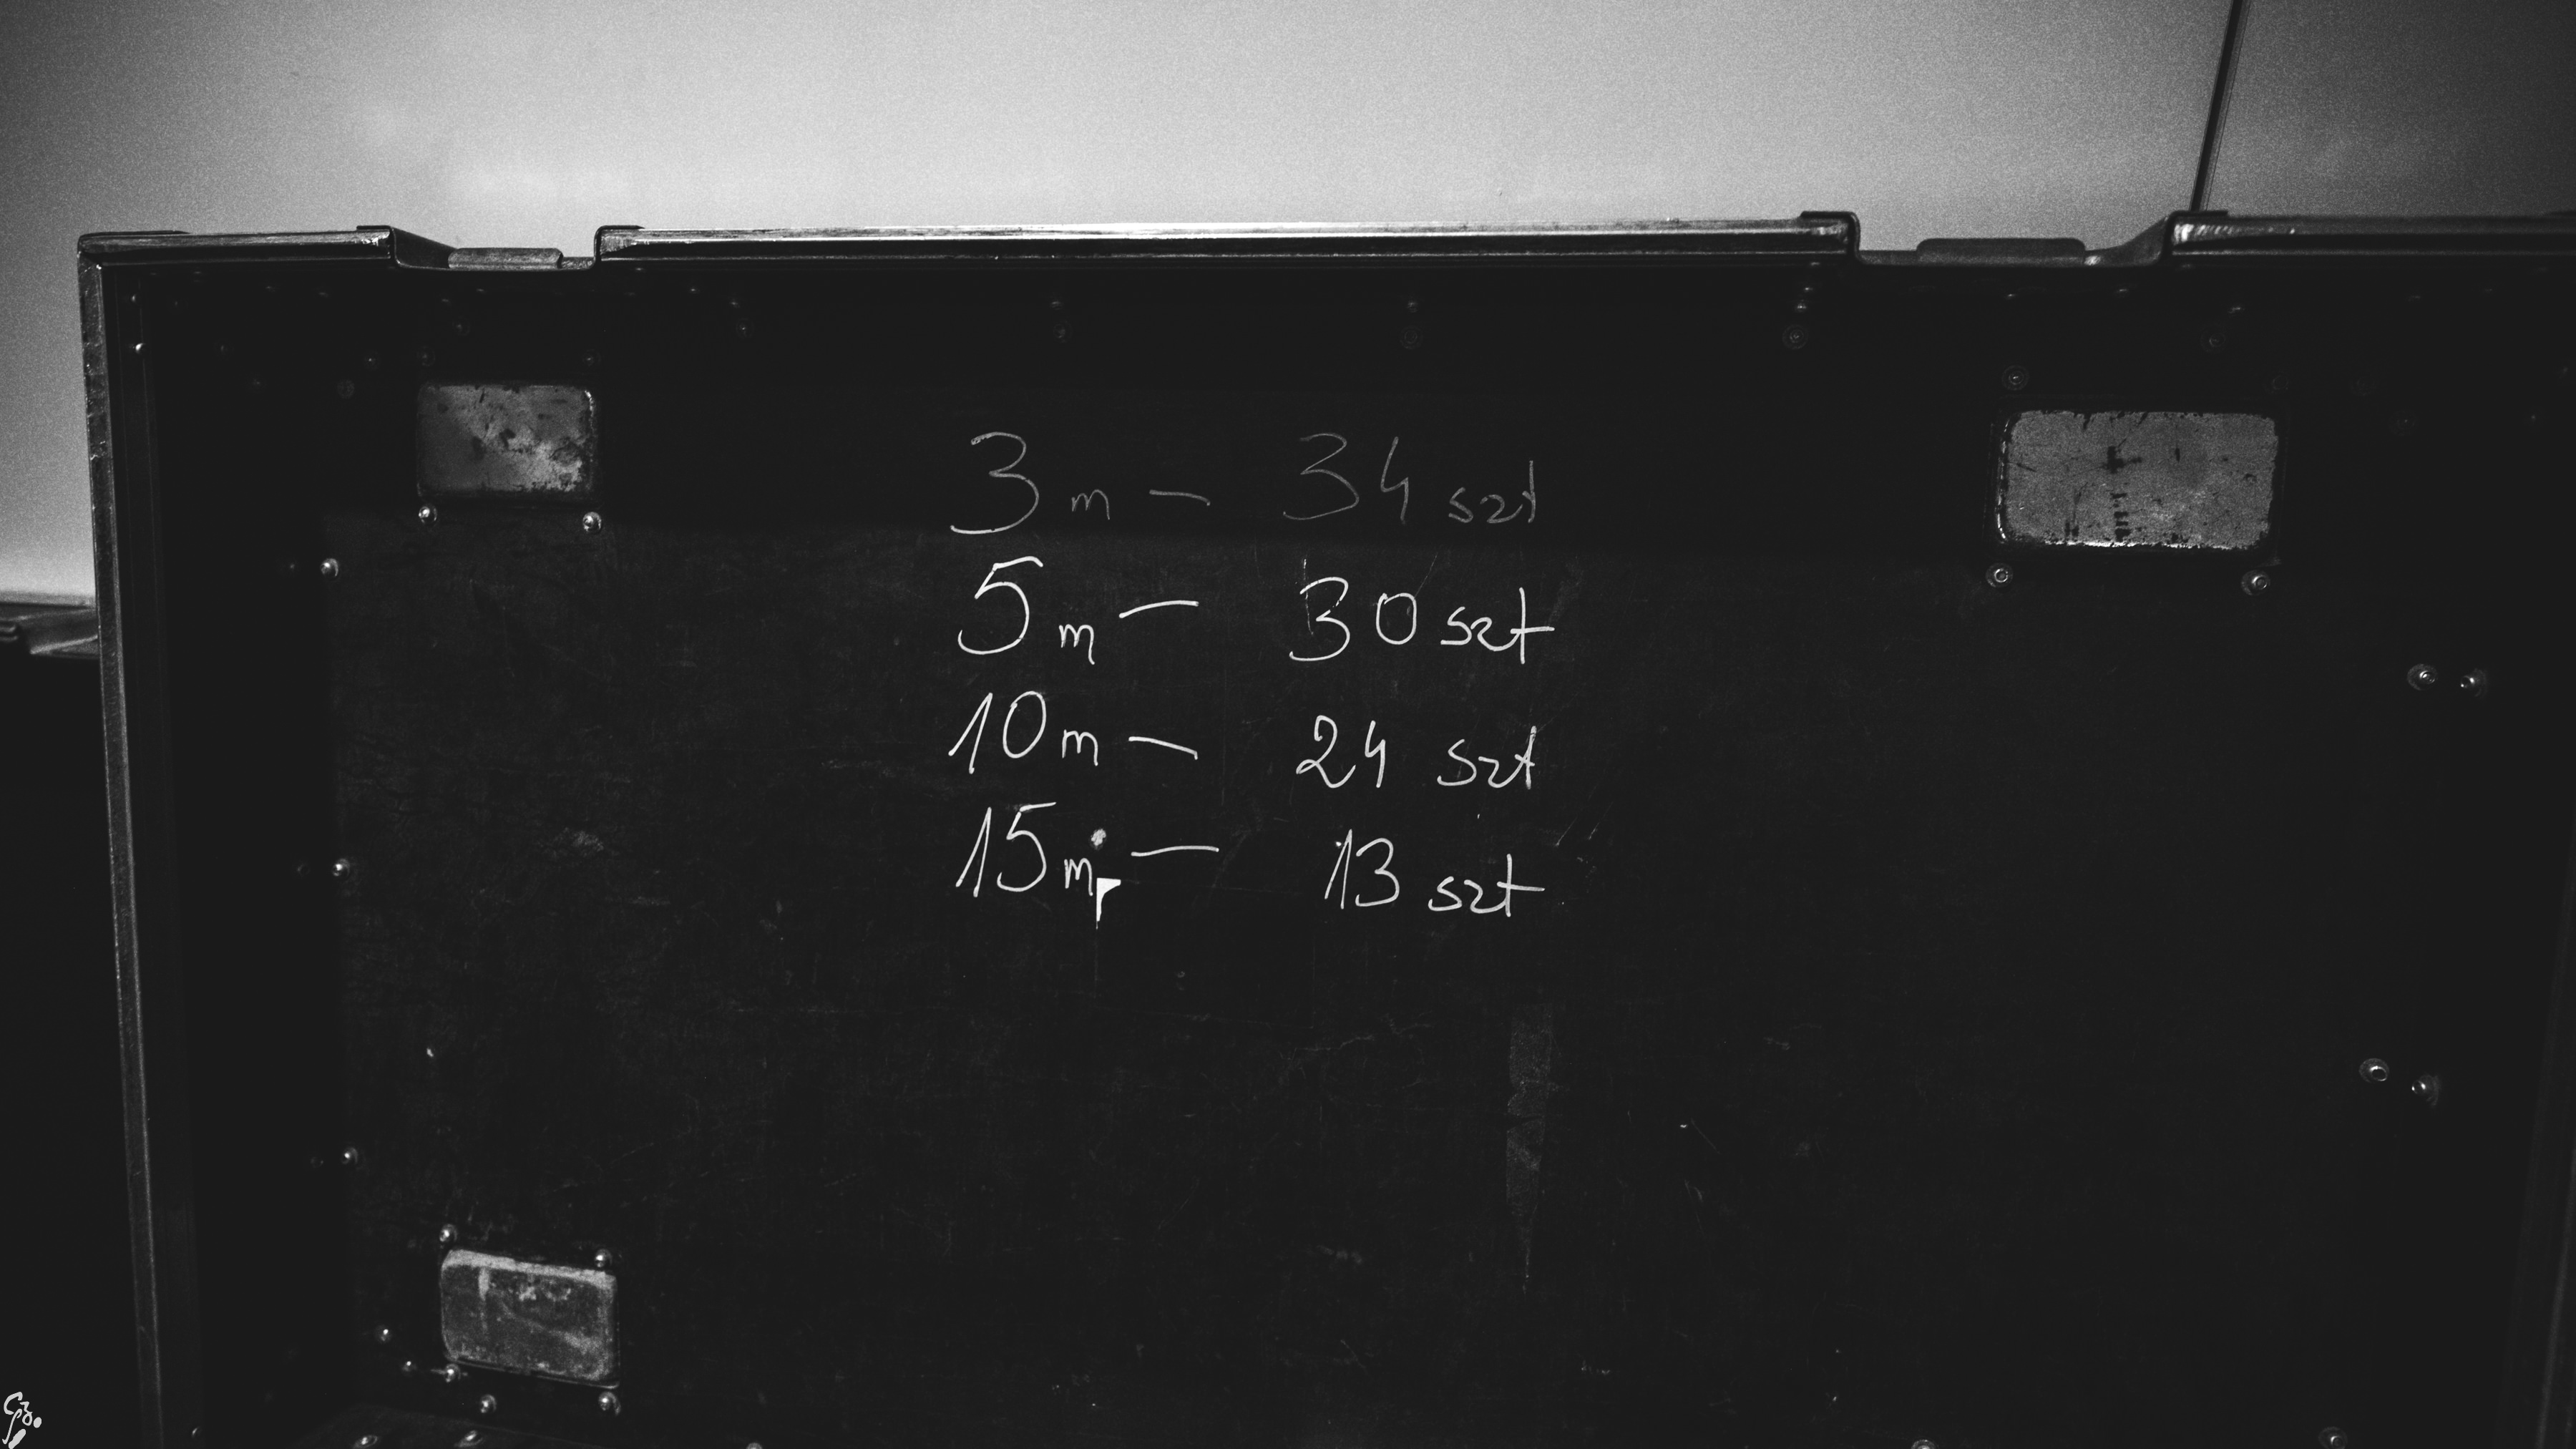 3m - 34 szt
5m - 30 szt
10m - 24 szt
15m - 13 szt